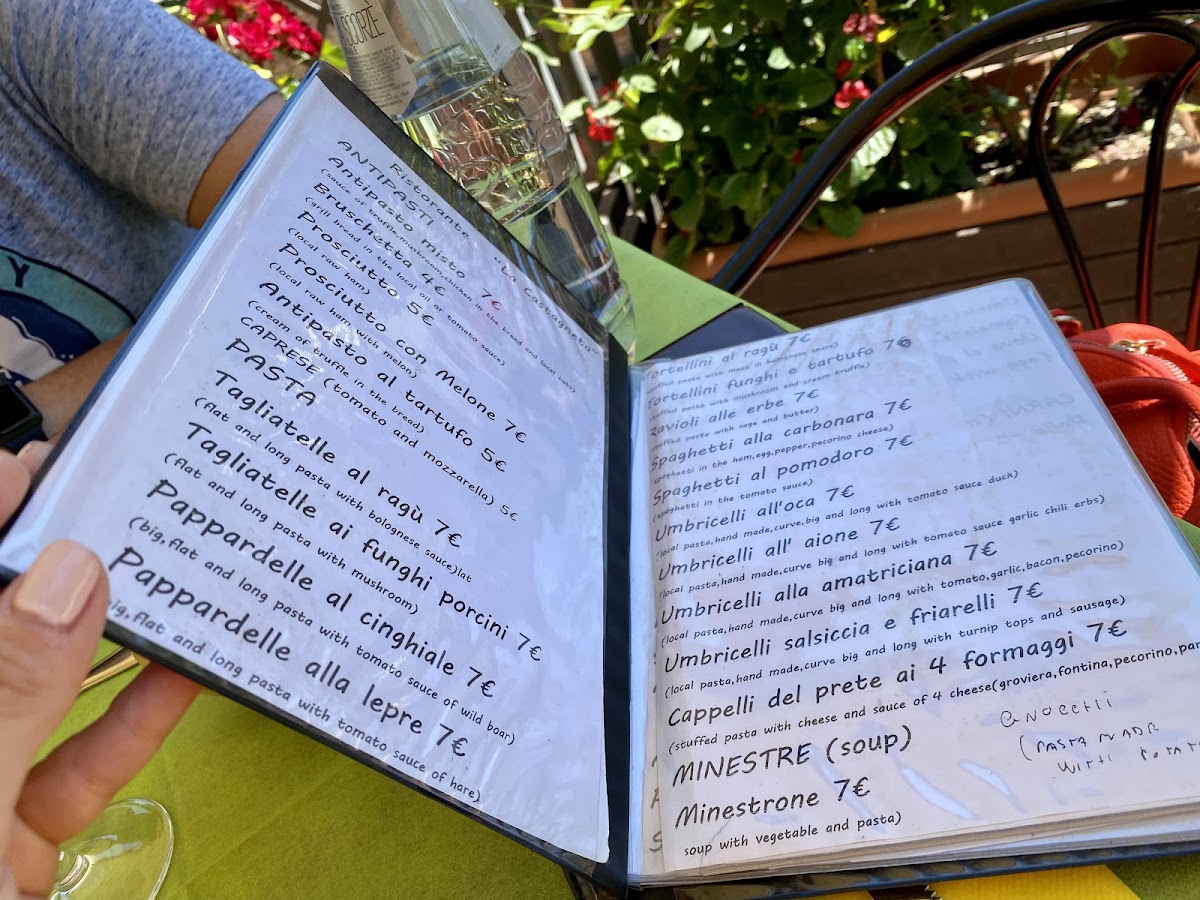 SCORZÈ
Y
Ristorante "La Castagneta"
ANTIPASTI
Antipasto misto 7€
(sauce of truffle,mushroom,chicken in the bread and local cubs)
Bruschetta 4€
(grill bread in the local oil or tomato sauce)
Prosciutto 5€
(local raw ham)
Prosciutto con Melone 7€
(local raw ham with melon)
Antipasto al tartufo 5€
(cream of truffle in the bread)
CAPRESE (tomato and mozzarella) 5€
PASTA
Tagliatelle al ragù 7€
(flat and long pasta with bolognese sauce)lat
Tagliatelle ai funghi porcini 7€
(flat and long pasta with mushroom)
Pappardelle al cinghiale 7€
(big,flat and long pasta with tomato sauce of wild boar)
Pappardelle alla lepre 7€
big,flat and long pasta with tomato sauce of hare)
Tortellini al ragù 7€
stuffed pasta with meat in bolognese sauce)
Tortellini funghi e tartufo 7€
stuffed pasta with mushroom and cream truffle)
Ravioli alle erbe 7€
stuffed pasta with sage and butter)
Spaghetti alla carbonara 7€
spaghetti in the ham,egg,pepper,pecorino cheese)
Spaghetti al pomodoro 7€
(spaghetti in the tomato sauce)
Umbricelli all'oca 7€
(local pasta,hand made,curve,big and long with tomato sauce duck)
Umbricelli all' aione 7€
(local pasta,hand made,curve big and long with tomato sauce garlic chili erbs)
Umbricelli alla amatriciana 7€
(local pasta,hand made,curve big and long with tomato,garlic,bacon,pecorino)
Umbricelli salsiccia e friarelli 7€
(local pasta,hand made,curve big and long with turnip tops and sausage)
Cappelli del prete ai 4 formaggi 7€
(stuffed pasta with cheese and sauce of 4 cheese(groviera,fontina,pecorino,par
MINESTRE (soup)
Minestrone 7€
soup with vegetable and pasta)
GNOCCHI
(PASTA MADE
WITH POTAT